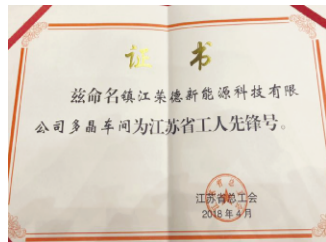 证书
兹命名镇江荣德新能源科技有限
公司多晶车间为江苏省工人先锋号。
江苏省总工会
2018年4月